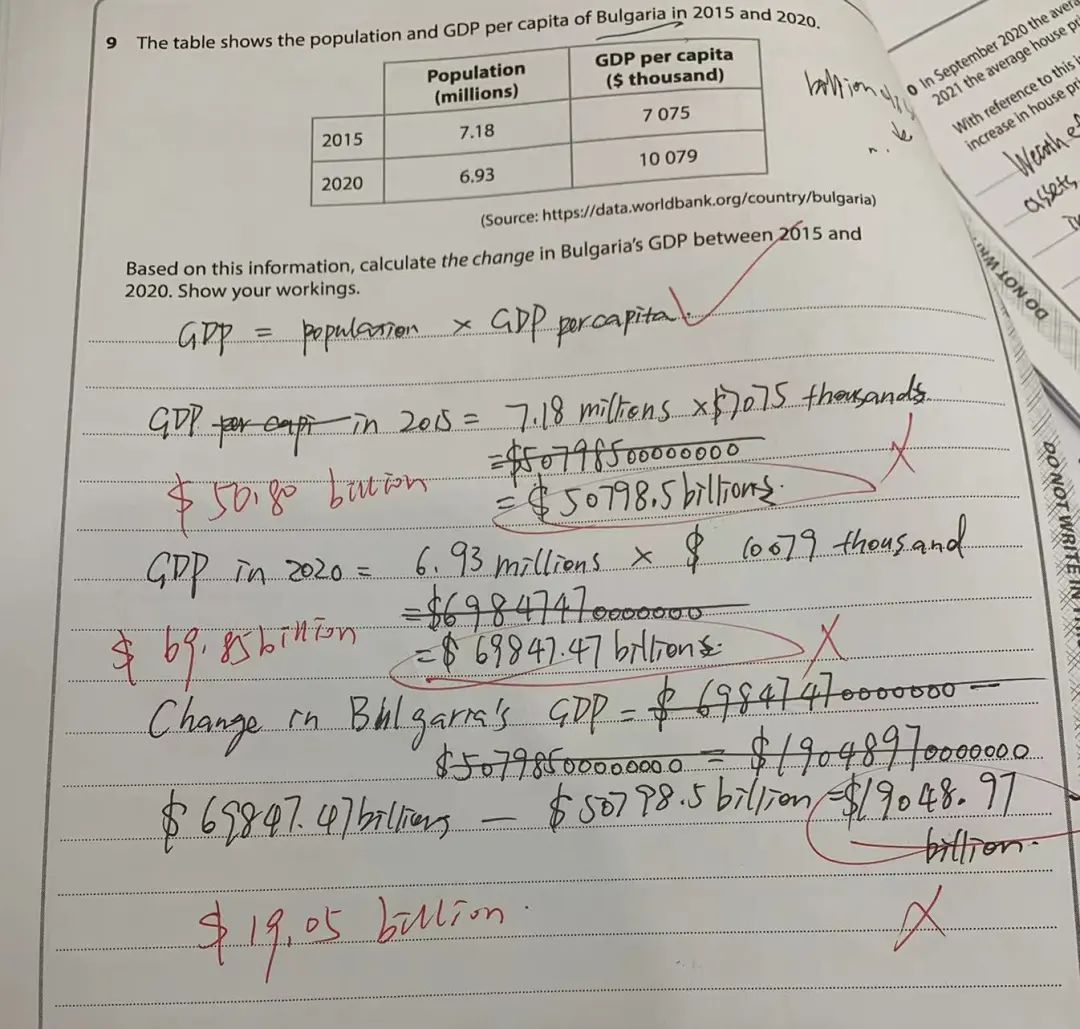 9 The table shows the population and GDP per capita of Bulgaria in 2015 and 2020.
Population (millions) GDP per capita ($ thousand)
2015 7.18 7 075
2020 6.93 10 079
(Source: https://data.worldbank.org/country/bulgaria)
Based on this information, calculate the change in Bulgaria's GDP between 2015 and
2020. Show your workings.
GDP = population × GDP per capita.
GDP per capi in 2015 = 7.18 millions × $7075 thousands.
= $50798500000000
$ 50.80 billion
= $ 50798.5 billions.
GDP in 2020 = 6.93 millions × $ 10079 thousand
= $69847470000000
$ 69.85 billion
= $ 69847.47 billions.
Change in Bulgaria's GDP = $ 69847470000000 —
$50798500000000 = $19048970000000
$ 69847.47 billions — $ 50798.5 billion = $19048.97
billion.
$ 19.05 billion.
In September 2020 the
2021 the average house
With reference to this
increase in house
assets,
DO NOT
DO NOT WRITE IN